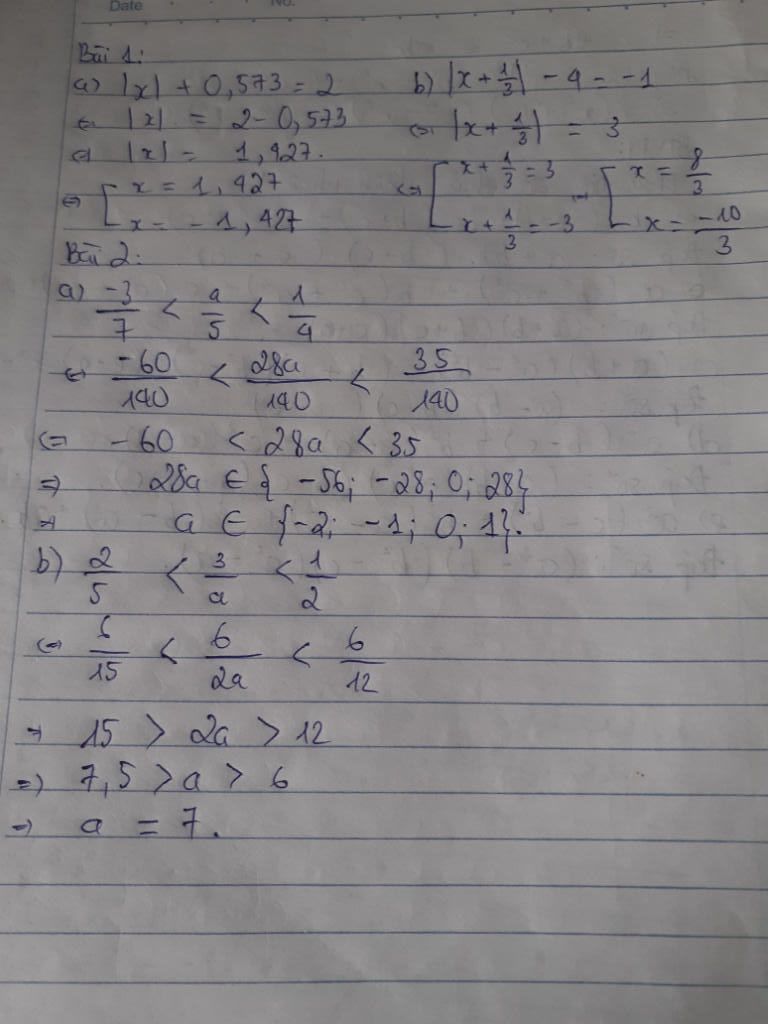 Date No.
Bài 1:
a) |x| + 0,573 = 2 b) |x + 1/3| - 4 = -1
⇔ |x| = 2 - 0,573 ⇔ |x + 1/3| = 3
⇔ |x| = 1,427.
⇔ [ x = 1,427 ⇔ [ x + 1/3 = 3 ⇔ [ x = 8/3
x = -1,427 x + 1/3 = -3 x = -10/3
Bài 2:
a) -3/7 < a/5 < 1/4
⇔ -60/140 < 28a/140 < 35/140
⇔ -60 < 28a < 35
⇒ 28a ∈ { -56; -28; 0; 28}
⇒ a ∈ {-2; -1; 0; 1}.
b) 2/5 < 3/a < 1/2
⇔ 6/15 < 6/2a < 6/12
⇒ 15 > 2a > 12
⇒ 7,5 > a > 6
⇒ a = 7.